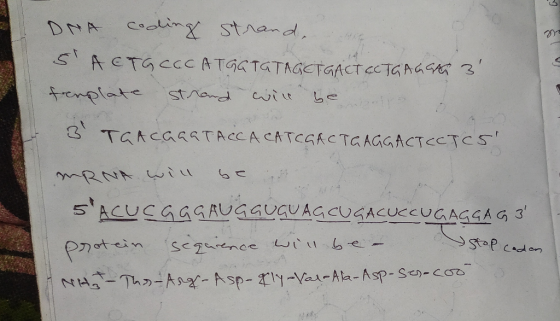 DNA coding strand.
5' ACTGCCCATGGTGTAGCTGACTCCTGAGGAG 3'
template strand will be
3' TGACGGGTACCACATCGACTGAGGACTCCTC 5'
mRNA will be
5' ACUCGGGAUGGUGUAGCUGACUCCUGAGGAG 3'
stop codon
protein sequience will be -
NH3+-Thr-Arg-Asp-Gly-Val-Ala-Asp-Ser-COO-